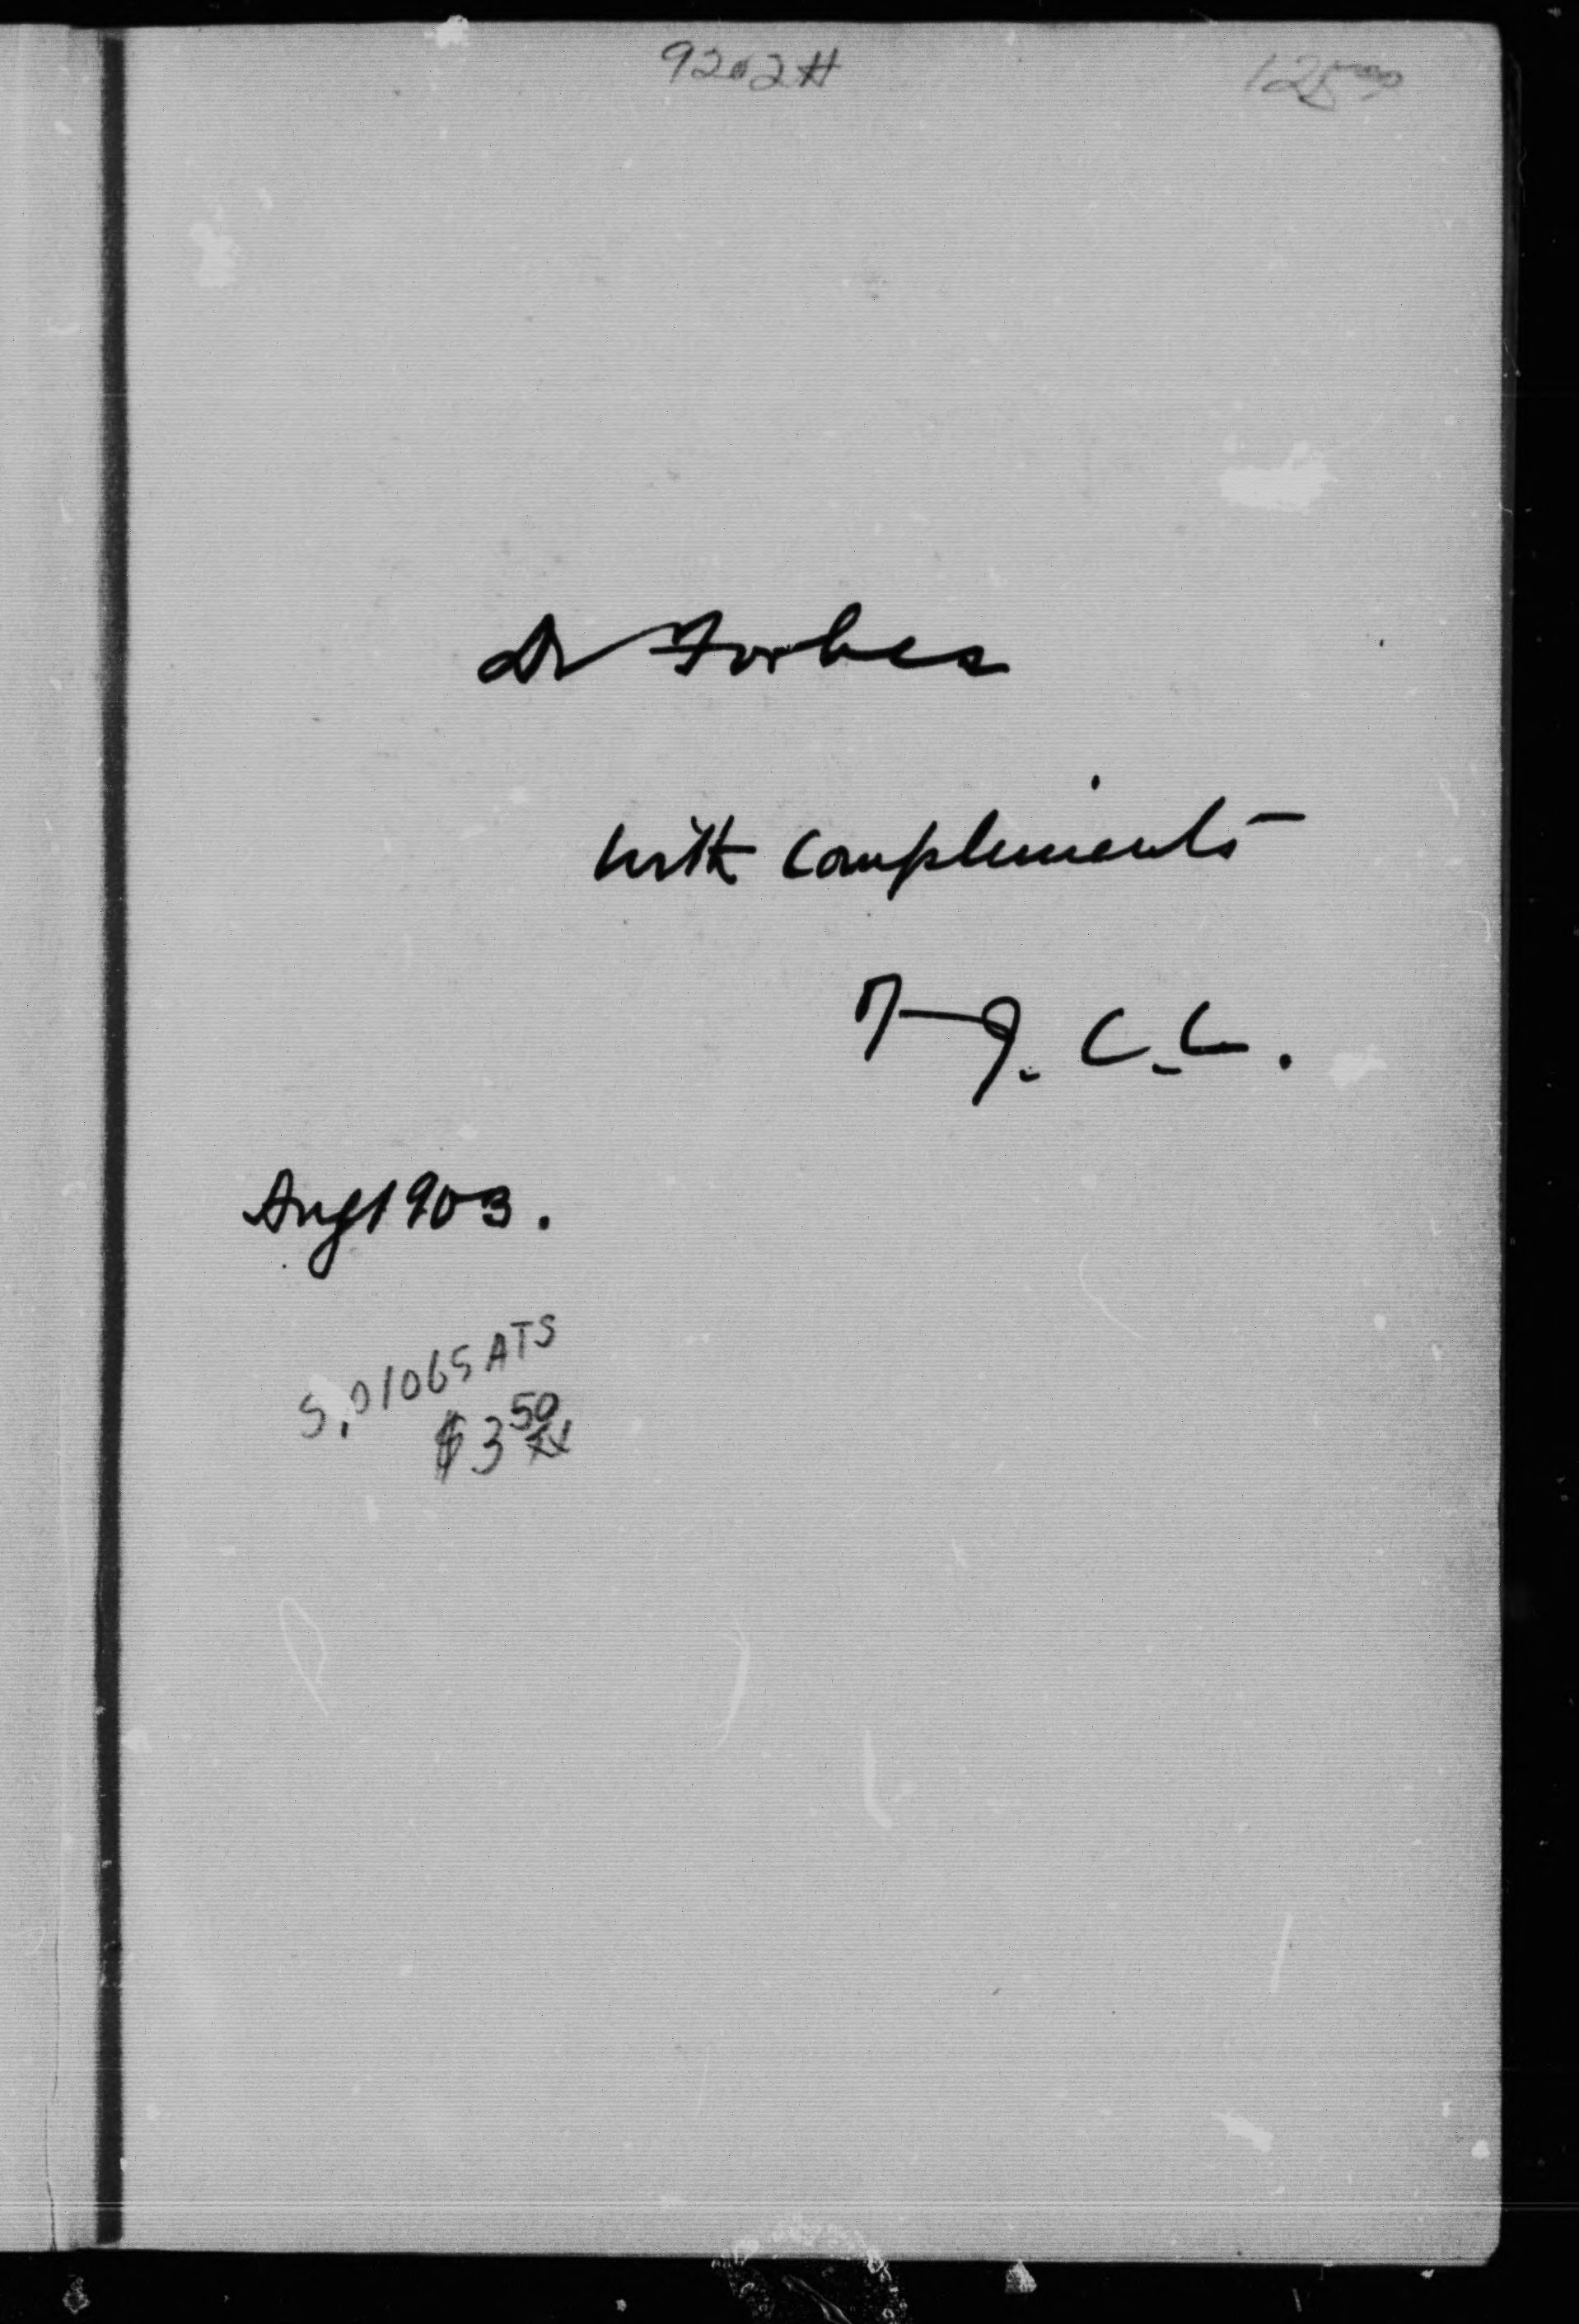 9202H
Dr Forbes
with compliments
J. C. C.
Aug 1903.
S.D1065ATS
$3 50